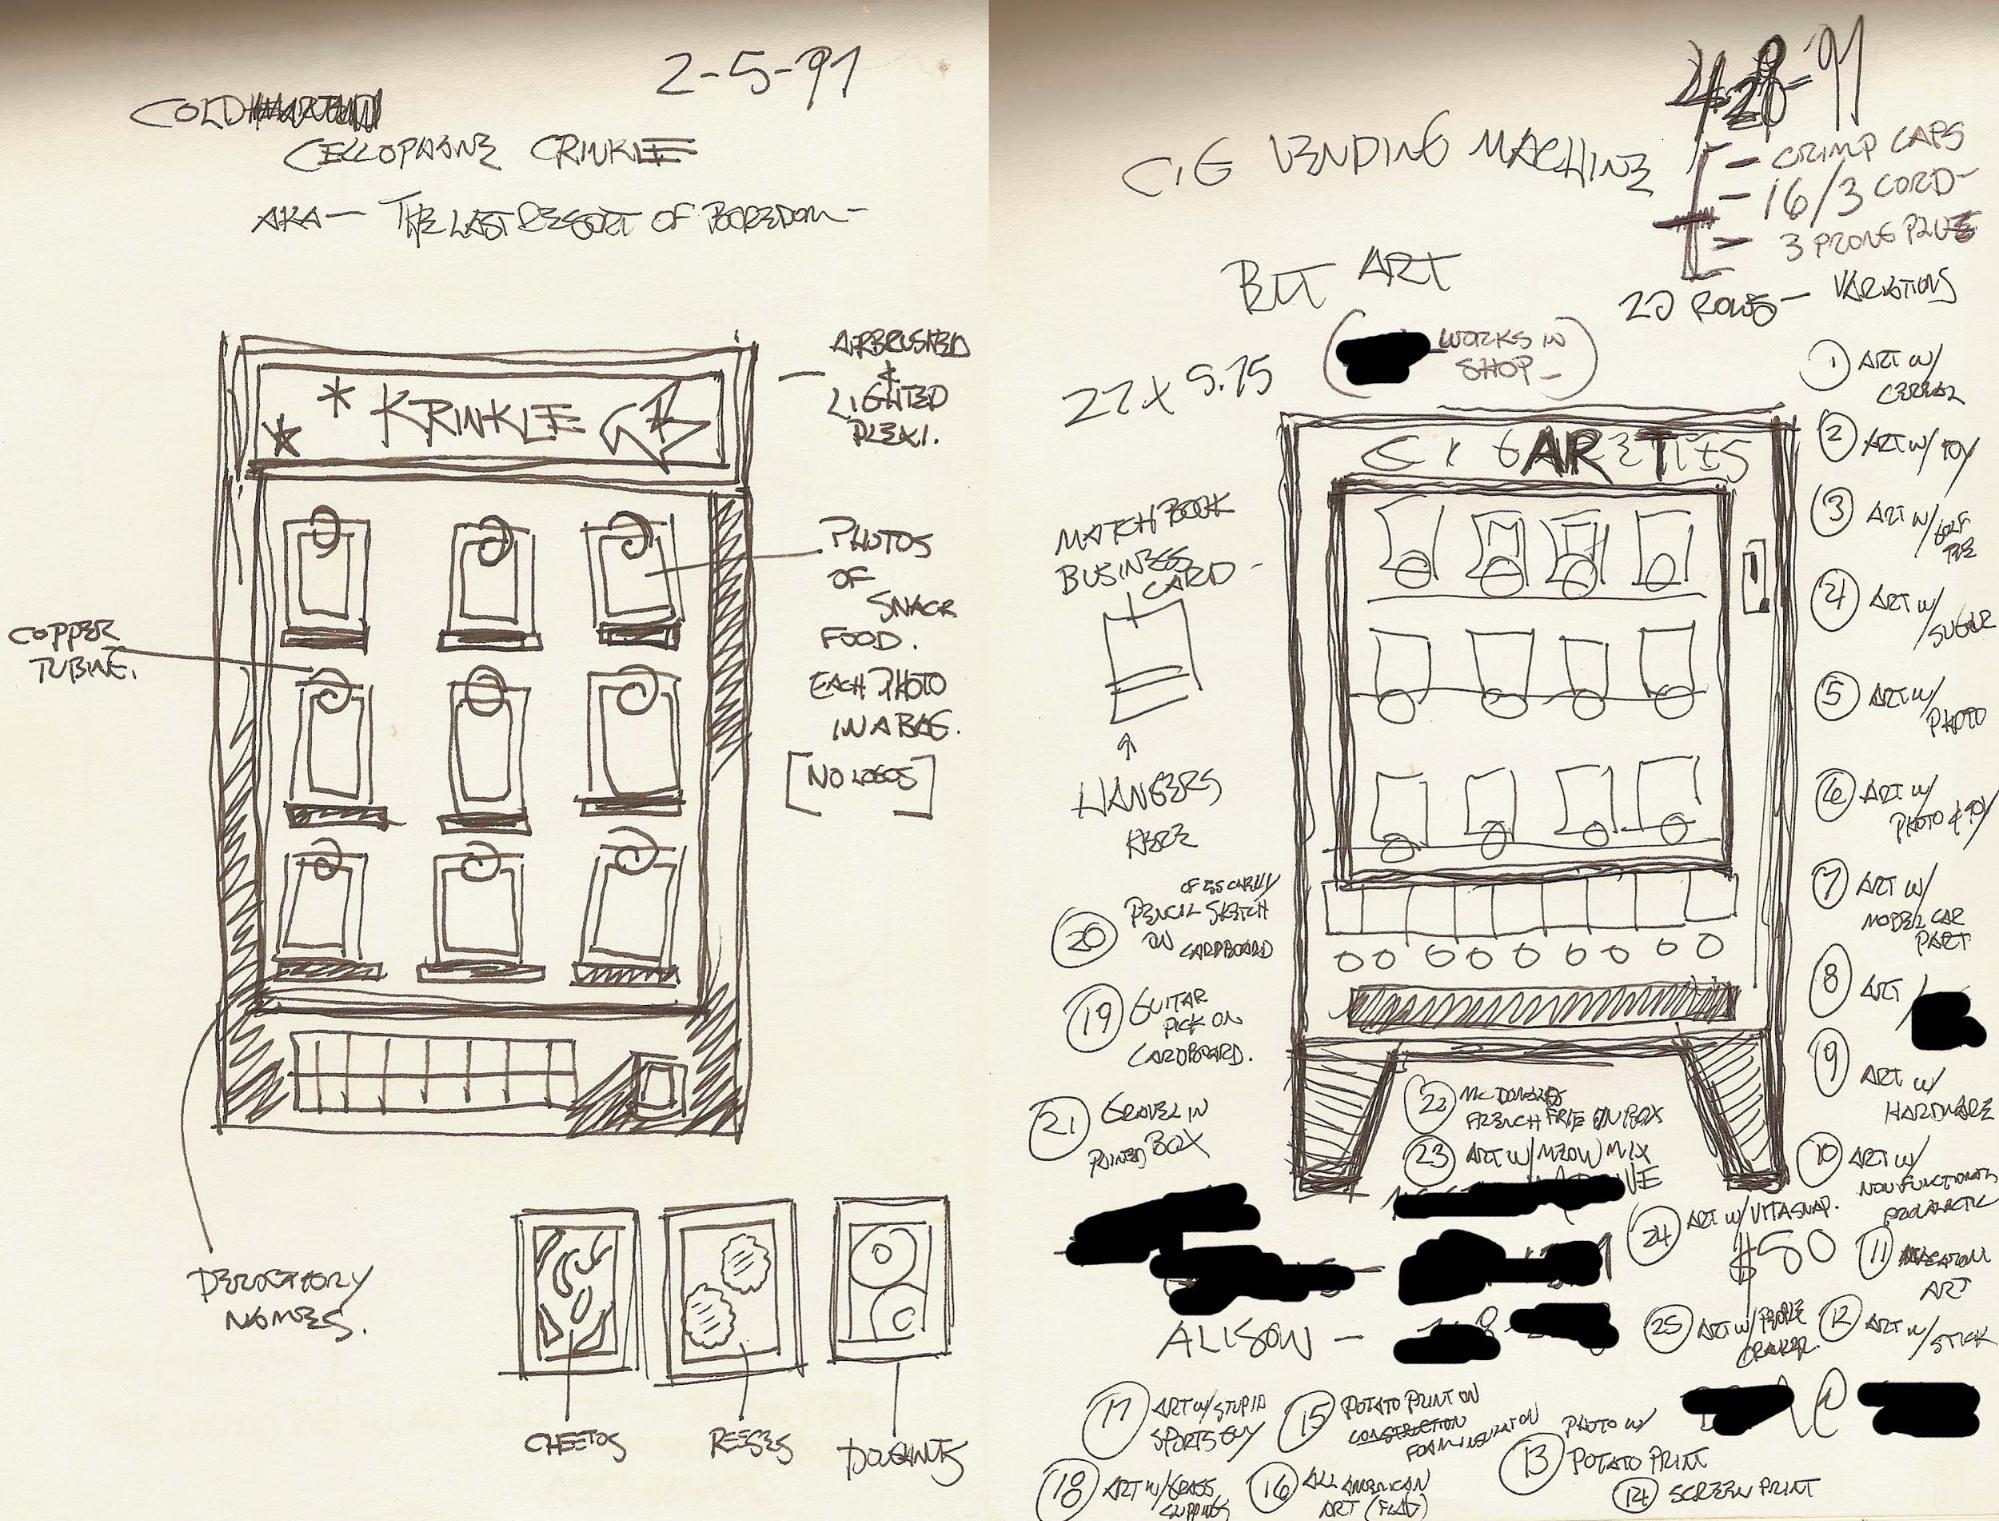 2-5-91
COLD
CELLOPHANE CRINKLE
AKA — THE LAST RESORT OF BOREDOM —
AIRBRUSHED
&
LIGHTED
PLEXI.
KRINKLE
PHOTOS
OF
SNACK
FOOD.
EACH PHOTO
IN A BAG.
[NO LOGOS]
COPPER
TUBING.
NAMES.
CHEETOS
REESES
DOUGHNUTS
28-'91
CIG VENDING MACHINE
- CRIMP CAPS
- 16/3 CORD-
- 3 PRONG PLUG
ART
20 ROWS — VARIATIONS
( WORKS IN
SHOP - )
22 x 5.75
CIGARETTES
ART
MATCHBOOK
BUSINESS
CARD -
↑
HANGERS
HERE
① ART W/
CEREAL
② ART W/ TOY
③ ART W/ GOLF
TEE
④ ART W/
SUGAR
⑤ ART W/
PHOTO
⑥ ART W/
PHOTO & TOY
⑦ ART W/
MODEL CAR
PART
⑧ ART /
⑨ ART W/
HARDWARE
⑩ ART W/
NON FUNCTIONAL
⑪ MACARONI
ART
⑫ ART W/
STICK
PHOTO W/
⑬ POTATO PRINT
⑭ SCREEN PRINT
⑮ POTATO PRINT ON
CONSTRUCTION
FOAM INSULATION
⑯ ALL AMERICAN
ART (FLAG)
⑰ ART W/ STUPID
SPORTS GUY
⑱ ART W/ GRASS
CLIPPINGS
⑲ GUITAR
PICK ON
CARDBOARD.
⑳ PENCIL SKETCH
ON CARDBOARD
㉑ GRAVEL IN
PAINTED BOX
㉒ MCDONALDS
FRENCH FRIE IN BOX
㉓ ART W/ MEOW MIX
㉔ ART W/ VITASNAP.
$50
㉕ ART W/
ALISON —